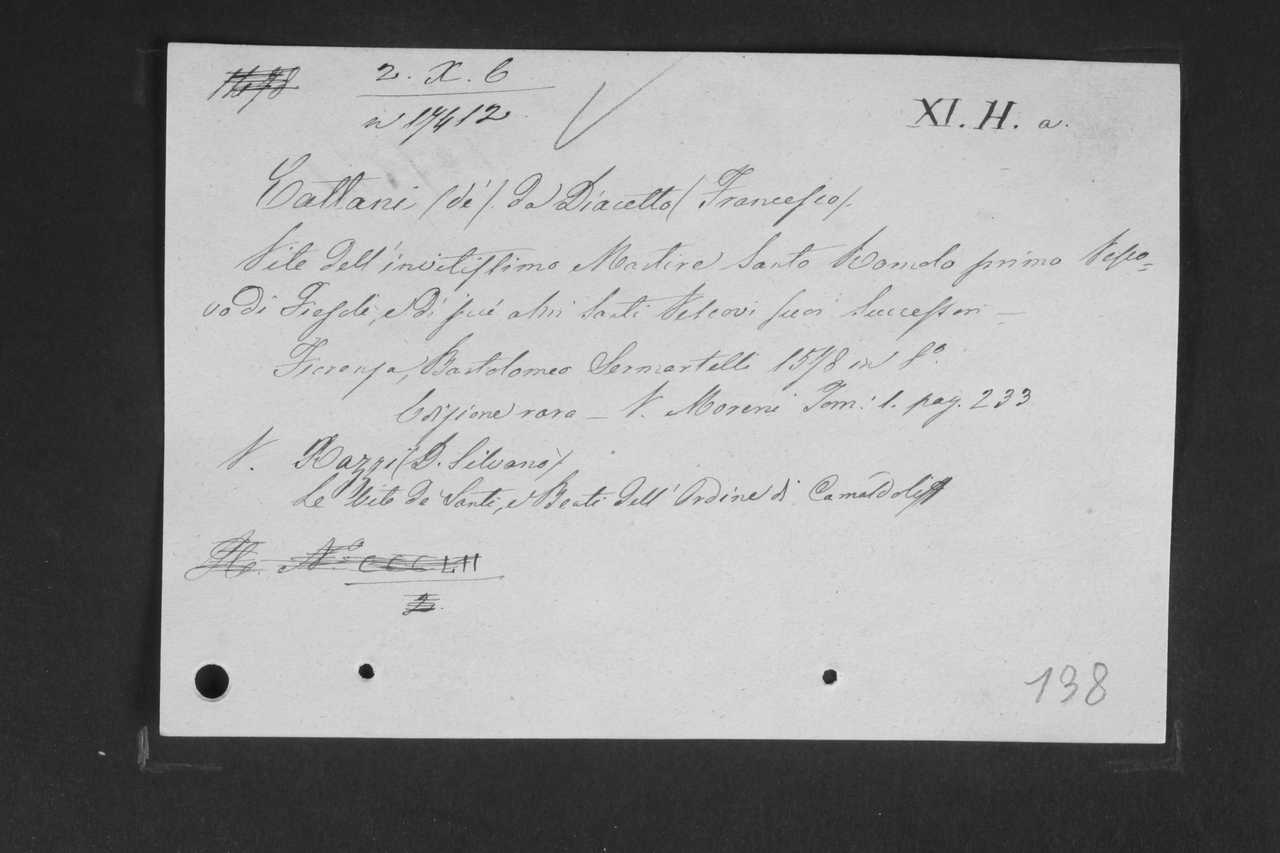 2. X. 6
n 17412
XI. H. a.
Cattani (dé). da Diacetto (Francesco).
Vite dell'invitissimo Martire Santo Romolo primo Vesco=
vo di Fiesole, e di più altri Santi Vescovi suoi Successori —
Firenze, Bartolomeo Sermartelli 1578 in 8º.
Edizione rara — V. Moreni Tom: 1. pag. 233
V. Razzi (D. Silvano)
Le Vite de' Santi, e Beati dell'Ordine di Camaldoli
Nº CCCLII
2.
138